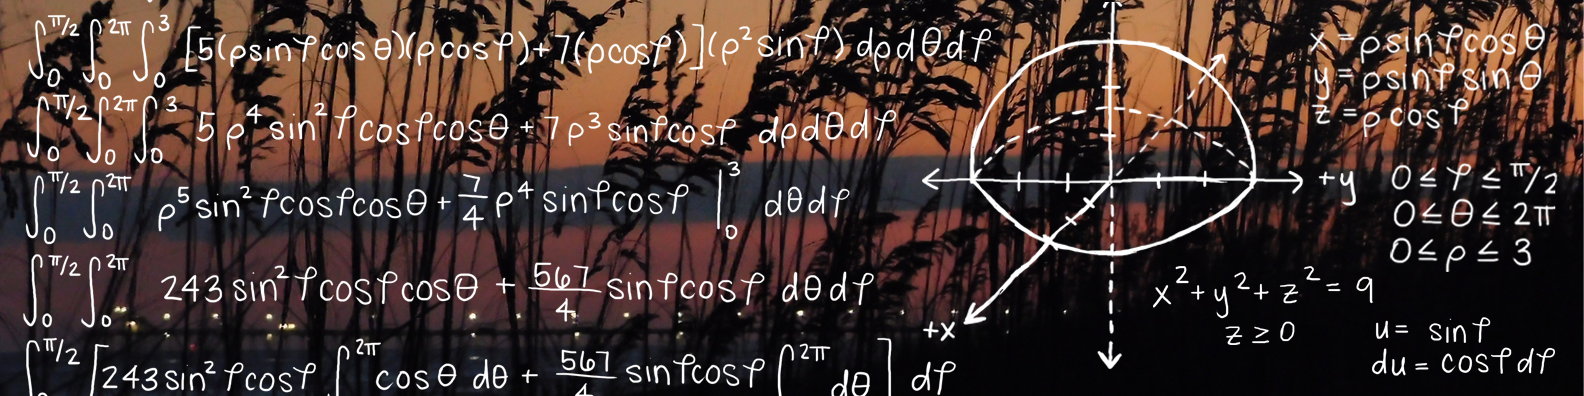 ∫₀^π/2 ∫₀^2π ∫₀^3 [5(ρsinφcosθ)(ρcosφ)+7(ρcosφ)](ρ²sinφ) dρdθdφ
∫₀^π/2 ∫₀^2π ∫₀^3 5ρ⁴sin²φcosφcosθ + 7ρ³sinφcosφ dρdθdφ
∫₀^π/2 ∫₀^2π ρ⁵sin²φcosφcosθ + 7/4 ρ⁴ sinφcosφ |₀^3 dθdφ
∫₀^π/2 ∫₀^2π 243 sin²φcosφcosθ + 567/4 sinφcosφ dθdφ
∫₀^π/2 [243sin²φcosφ ∫^2π cosθ dθ + 567/4 sinφcosφ ∫^2π dθ] dφ
+y
+x
x²+y²+z²=9
z≥0
x=ρsinφcosθ
y=ρsinφsinθ
z=ρcosφ
0≤φ≤π/2
0≤θ≤2π
0≤ρ≤3
u= sinφ
du=cosφdφ